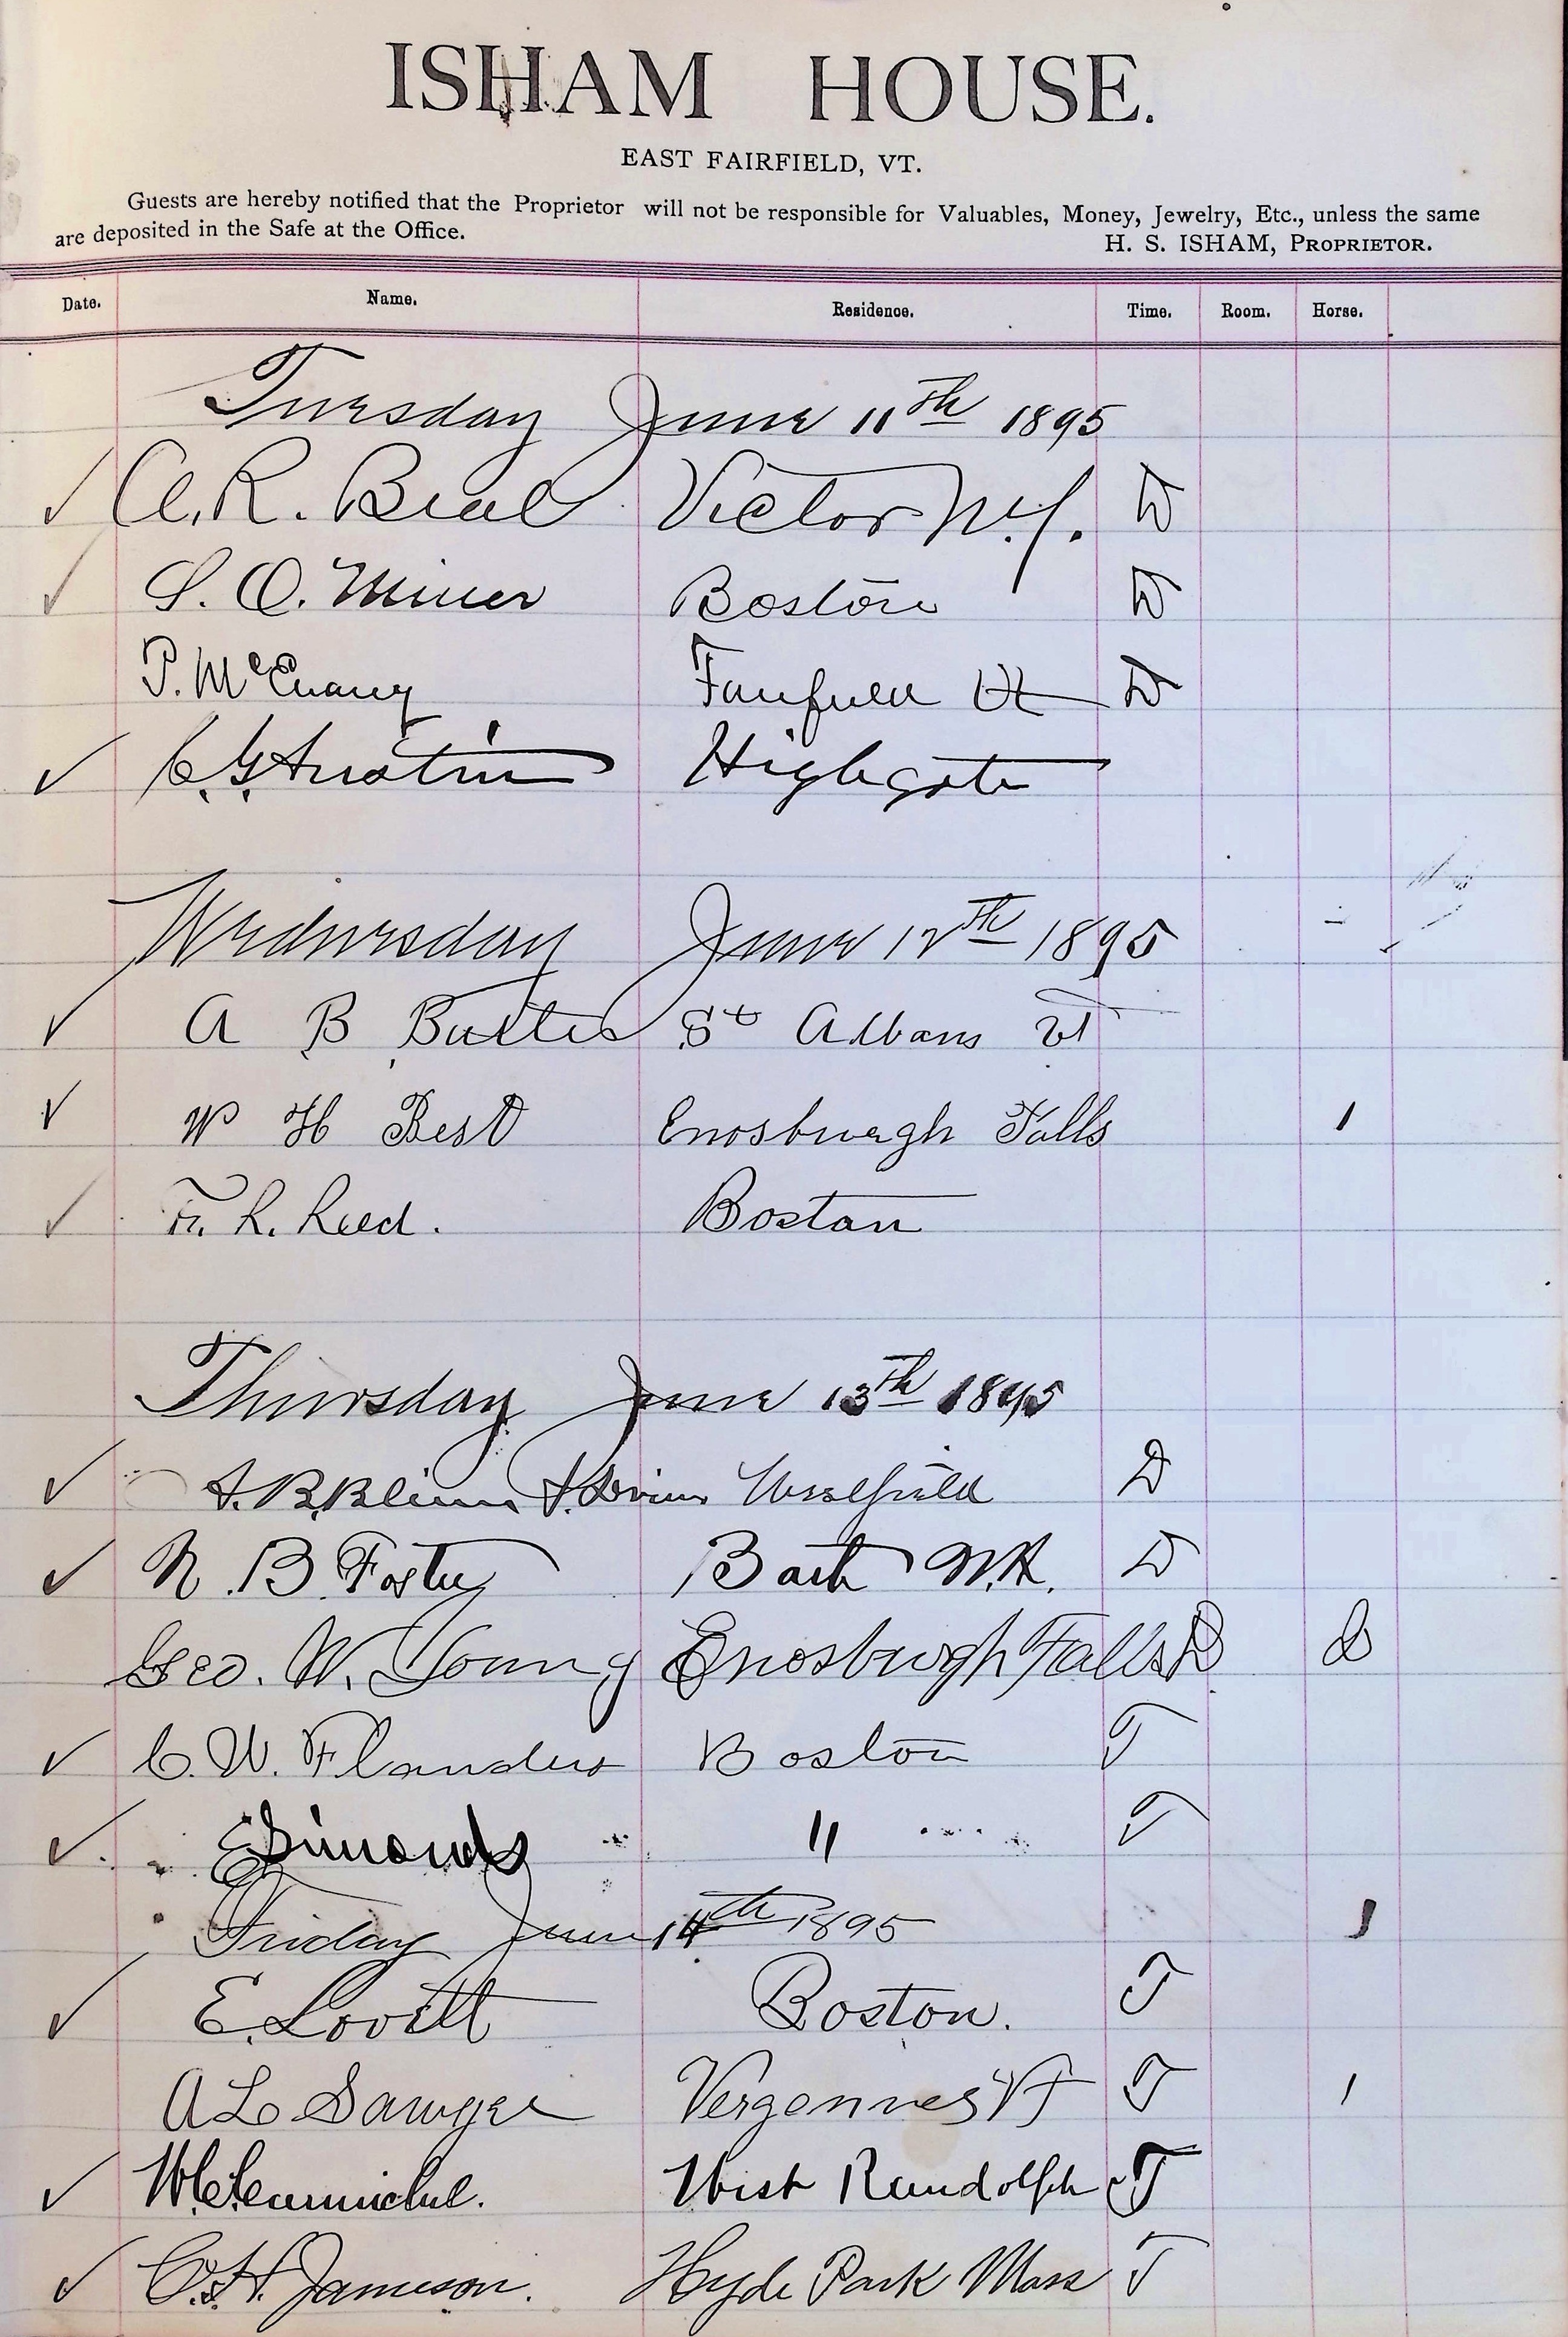 ISHAM HOUSE.
EAST FAIRFIELD, VT.
Guests are hereby notified that the Proprietor will not be responsible for Valuables, Money, Jewelry, Etc., unless the same
are deposited in the Safe at the Office.
H. S. ISHAM, PROPRIETOR.
Date. Name. Residence. Time. Room. Horse.
Tuesday June 11th 1895
A. R. Beal Victor N.Y. D
S. O. Miner Boston D
P. McEnany Fairfield Vt D
C. G. Austin Highgate
Wednesday June 12th 1895
A B St Albans Vt
W H Best Enosburgh Falls 1
F. R. Reed. Boston
Thursday June 13th 1895
Westfield D
N. B. Foster Bath N.H. D
Geo. W. Young Enosburgh Falls D
C. W. Flanders Boston T
E Simonds " T
Friday June 14th 1895 1
E. Lovell Boston. T
A L Sawyer Vergennes Vt T 1
West Randolph T
C. H. Jameson. Hyde Park Mass T